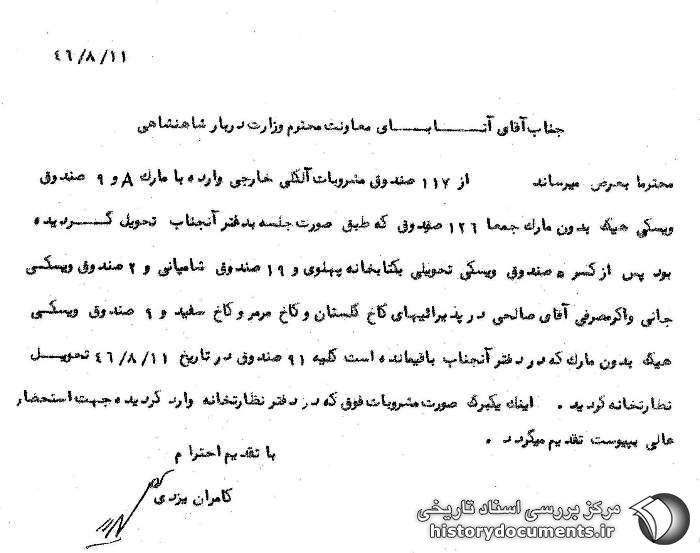 ۴۶/۸/۱۱
جناب آقای آتـــــابـــای معاونت محترم وزارت دربار شاهنشاهی
محترما بعرض میرساند از ۱۱۷ صندوق مشروبات الکلی خارجی وارده با مارک A و ۹ صندوق
ویسکی هیگ بدون مارک جمعا ۱۲۶ صندوق که طبق صورت جلسه بدفتر آنجناب تحویل گـــردیده
بود پس از کسر ۵ صندوق ویسکی تحویلی بکتابخانه پهلوی و ۱۹ صندوق شامپانی و ۲ صندوق ویسکــی
جانی واکر مصرفی آقای صالحی در پذیرائیهای کاخ گلستان و کاخ مرمر و کاخ سفید و ۹ صندوق ویسکــی
هیگ بدون مارک که در دفتر آنجناب باقیمانده است کلیه ۹۱ صندوق در تاریخ ۴۶/۸/۱۱ تحویـــل
نظارتخانه گردید . اینک یکبرگ صورت مشروبات فوق که در دفتر نظارتخانه وارد گردیده جهت استحضار
عالی بپیوست تقدیم میگردد .
با تقدیم احترام
کامران یزدی
مرکز بررسی اسناد تاریخی
historydocuments.ir